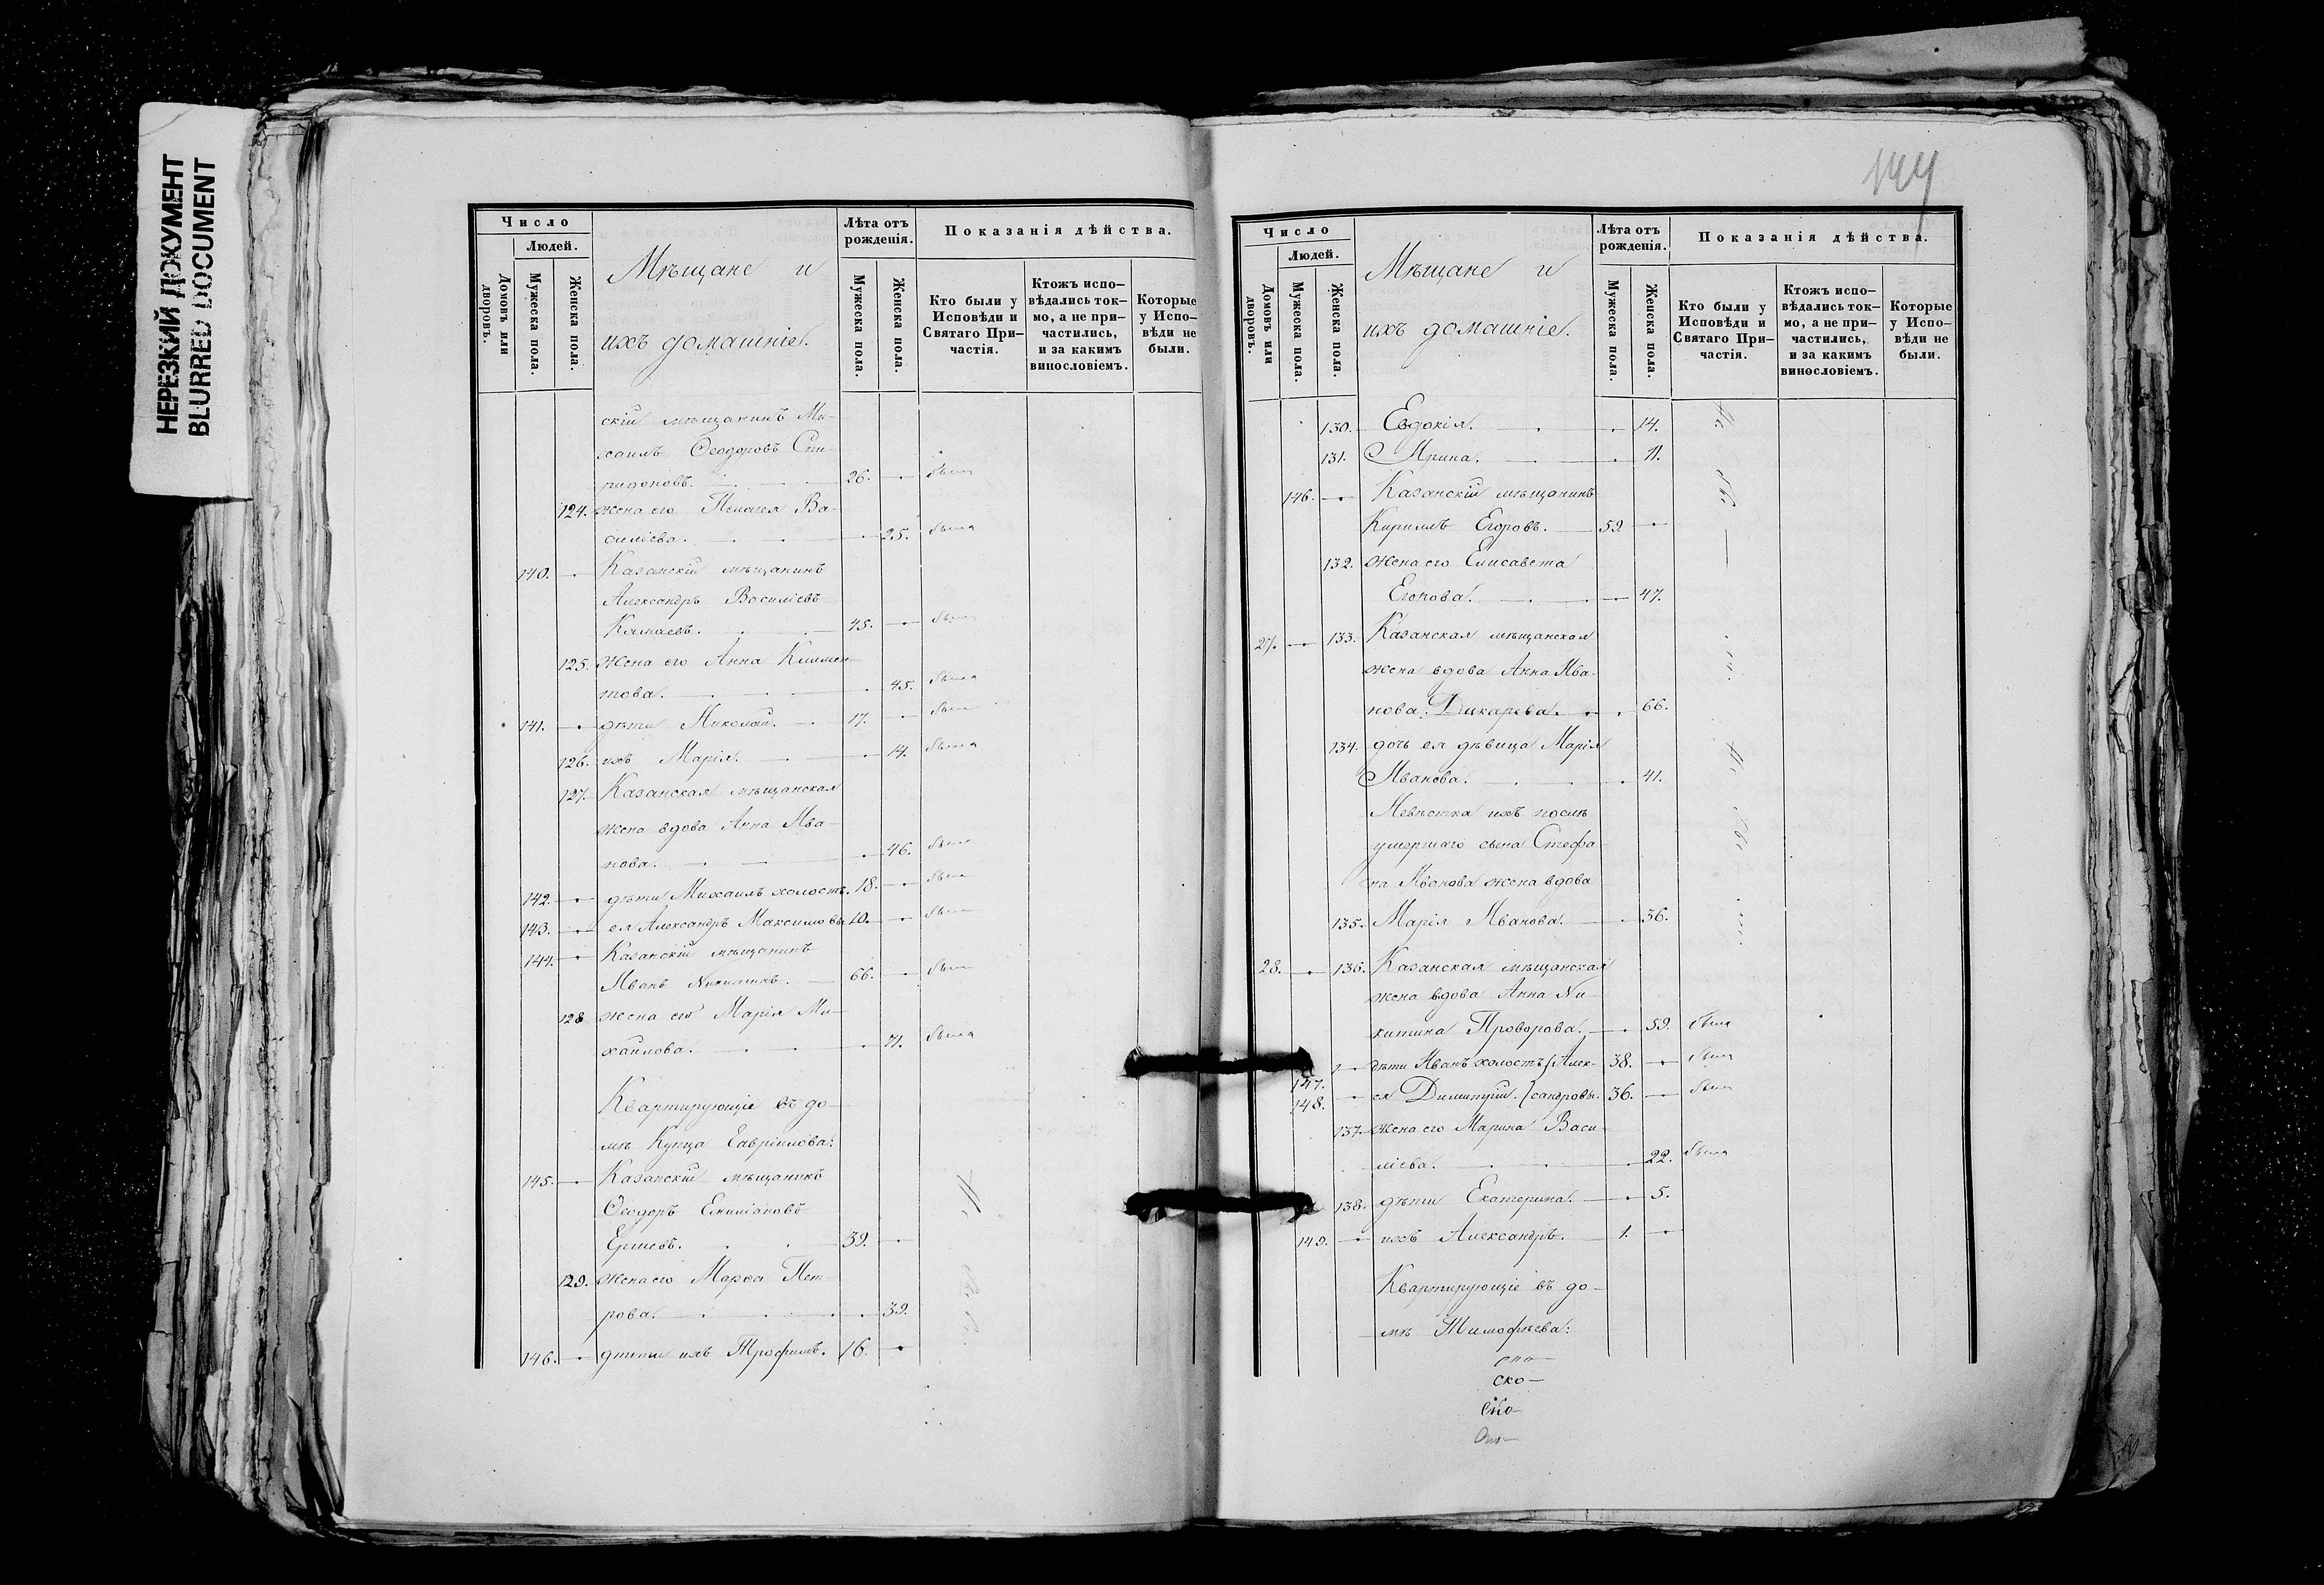 НЕРЕЗКИЙ ДОКУМЕНТ
BLURRED DOCUMENT
Число
Людей.
Домовъ или дворовъ.
Мужеска пола.
Женска пола.
Мѣщане и
ихъ домашніе.
Лѣта отъ рожденія.
Мужеска пола.
Женска пола.
Показанія дѣйства.
Кто были у Исповѣди и Святаго Причастія.
Ктожъ исповѣдались токмо, а не причастились, и за какимъ винословіемъ.
Которые у Исповѣди не были.
скій мѣщанинъ Ми-
хаилъ Ѳеодоровъ Спи-
ридоновъ. 26. былъ
124. жена его Пелагея Ва-
силіева. 25. была
140. Казанскій мѣщанинъ
Александръ Василіевъ
Камаевъ. 45. былъ
125. жена его Анна Климен-
това. 45. была
141. дѣти Николай. 17. былъ
126. ихъ Марія. 14. была
127. Казанская мѣщанская
жена вдова Анна Ива-
нова. 46. была
142. дѣти Михаилъ холостъ. 18. былъ
143. ея Александръ Максимовы 10. былъ
144. Казанскій мѣщанинъ
Иванъ Никитинъ. 66. былъ
128. жена его Марія Ми-
хайлова. 71. была
Квартирующіе въ до-
мѣ Купца Гавріилова:
145. Казанскій мѣщанинъ
Ѳеодоръ Емиліановъ
39.
129. жена его Марѳа Пет-
рова. 39.
146. дѣти ихъ Трофимъ. 16.
144
Число
Людей.
Домовъ или дворовъ.
Мужеска пола.
Женска пола.
Мѣщане и
ихъ домашніе.
Лѣта отъ рожденія.
Мужеска пола.
Женска пола.
Показанія дѣйства.
Кто были у Исповѣди и Святаго Причастія.
Ктожъ исповѣдались токмо, а не причастились, и за какимъ винословіемъ.
Которые у Исповѣди не были.
130. Евдокія. 14.
131. Ирина. 11.
146. Казанскій мѣщанинъ
Кириллъ Егоровъ. 59.
132. жена его Елисавета
Егорова. 47.
27. 133. Казанская мѣщанская
жена вдова Анна Ива-
нова Дикарева. 66.
134. дочь ея дѣвица Марія
Иванова. 41.
Невѣстка ихъ послѣ
умершаго сына Стефа-
на Иванова жена вдова
135. Марія Иванова. 36.
28. 136. Казанская мѣщанская
жена вдова Анна Ни-
китина Проворова. 59. была
147. дѣти Иванъ холостъ (Алек- 38. былъ
148. ея Димитрій. (сандровы. 36. былъ
137. жена его Марина Васи-
ліева. 22. была
138. дѣти Екатерина. 5.
149. ихъ Александръ. 1.
Квартирующіе въ до-
мѣ Тимофѣева:
ско-